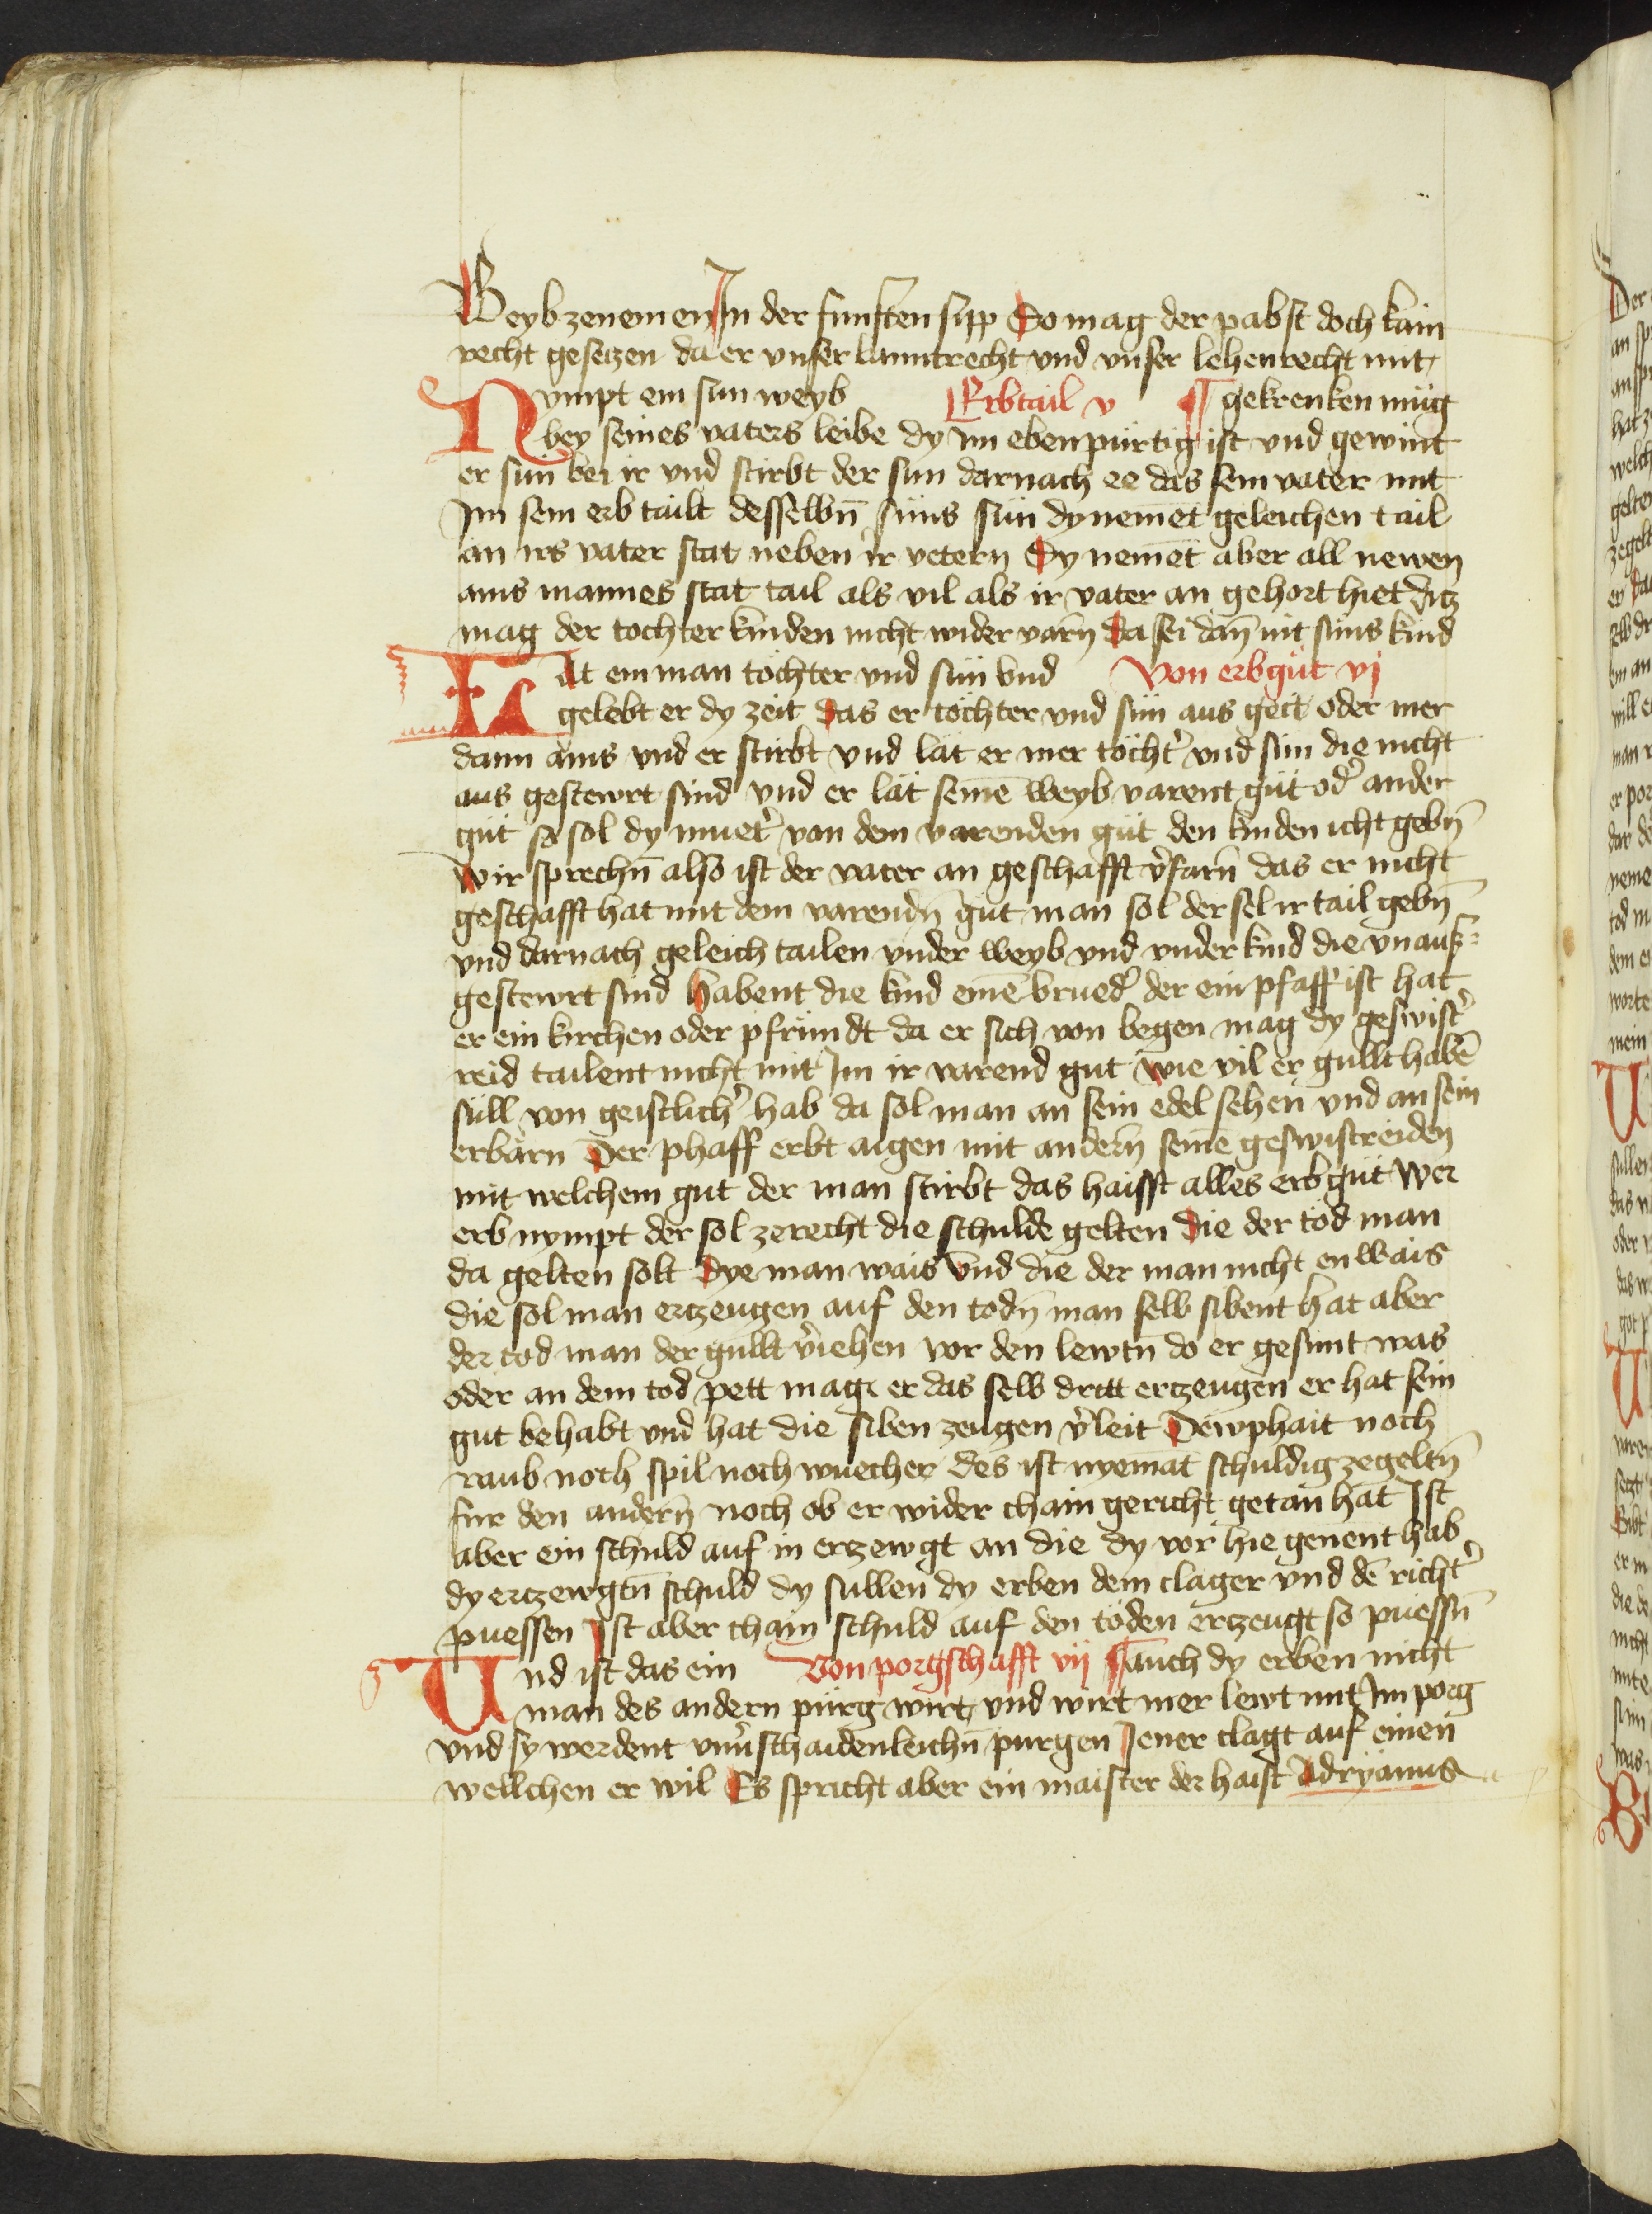 Weyb zenemen In der funften sipp Do mag der pabst doch kain
recht gesetzen da er vnser lanntrecht vnd vnser lehenrecht mit
Nympt ein sun weyb Erbtail v ¶ gekrenken müg
bey seines vaters leibe dy im ebenpürtig ist vnd gewint
er sün bei ir vnd stirbt der sun darnach ee das sein vater mit
Im sein erb tailt desselbn̄ süns sün dy nemēt geleichen tail
an irs vater stat neben ir vetern Dy nemēt aber all newen
ains mannes stat tail als vil als ir vater an gehort hiet ditz
mag der tochter kinden nicht wider varn̄ Da sei dan̄ nit süns kind
Hat ein man töchter vnd sün vnd Von erbgüt vj
gelebt er dy zeit das er töchter vnd sün aus geit oder mer
dann ains vnd er stirbt vnd lät er mer töcht᾿ vnd sün die nicht
aus gestewrt sind vnd er lät seinē weyb varent güt od᾿ ander
güt so sol dy muet᾿ von dem varenden güt den kinden icht gebn̄
Wir sprechn̄ also ist der vater an geschafft v᾿farn̄ das er nicht
geschafft hat mit dem varendn̄ gut man sol der sel ir tail gebn̄
vnd darnach geleich tailen vnder weyb vnd vnder kind die vnauß=
gestewrt sind habent die kind einē brued᾿ der ein pfaff ist hat
er ein kirchen oder pfründt da er sich von begen mag dy geswist᾿
reid tailent nicht mit Im ir varend gut wie vil er gullt habē
süll von geistlich᾿ hab da sol man an sein edel sehen vnd an sein
erbärn Der phaff erbt aigen mit andern̄ seinē geswistreiden
mit welchem gut der man stirbt das haisst alles erbgüt wer
erb nympt der sol zerecht die schulde gelten die der tod man
da gelten solt dye man wais vnd die der man nicht en wais
die sol man ertzeugen auf den todn̄ man selb sibent hat aber
der tod man der gullt v᾿iehen vor den lewtn̄ do er gesunt was
oder an dem tod pett mag er das selb dritt ertzeugen er hat sein
gut behabt vnd hat die siben zeugen v᾿leit Dewphait noch
raub noch spil noch wuecher des ist nyemāt schuldig zegeltn̄
fur den andern̄ noch ob er wider chain gericht getan hat Ist
aber ein schuld auf in ertzewgt an die dy vor hie genent hab
dy ertzewgtn̄ schuld dy sullen dy erben dem clager vnd dē richt᾿
puessen Ist aber chain schuld auf den töden ertzeugt so puessn̄
Vnd ist das ein Von porgschafft vij ¶ auch dy erben nicht
man des andern pürg wirt vnd wirt mer lewt mit Im porg
vnd sy werdent vnu᾿schaidenleichn̄ purgen Jener clagt auf einen
wellchen er wil Es spricht aber ein maister der haist Adryanus